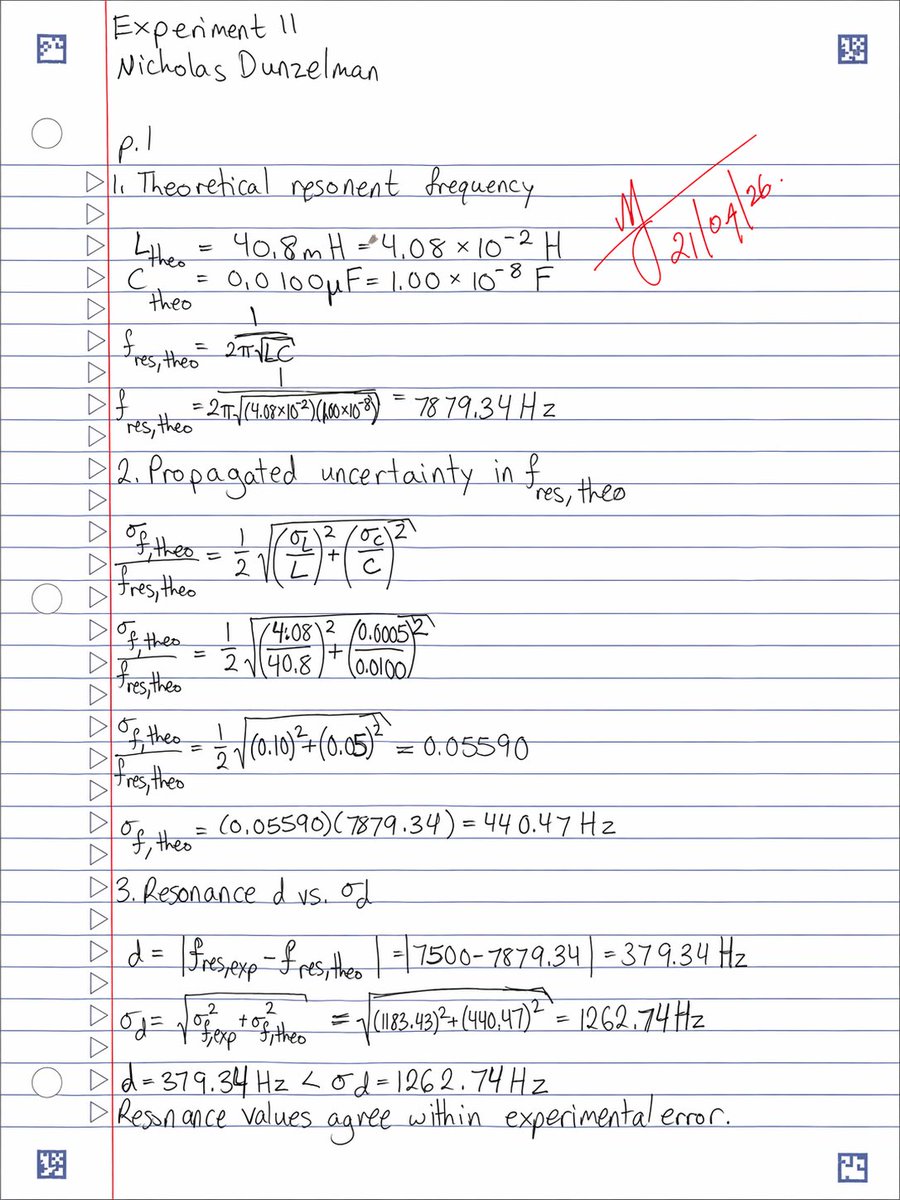 Experiment 11
Nicholas Dunzelman
p.1
1. Theoretical resonent frequency
21/04/26.
L_theo = 40.8mH = 4.08 × 10^-2 H
C_theo = 0.0100μF = 1.00 × 10^-8 F
f_res,theo = 1/(2π√(LC))
f_res,theo = 1/(2π√((4.08×10^-2)(1.00×10^-8))) = 7879.34 Hz
2. Propagated uncertainty in f_res,theo
σ_f,theo/f_res,theo = 1/2 √((σ_L/L)^2 + (σ_C/C)^2)
σ_f,theo/f_res,theo = 1/2 √((4.08/40.8)^2 + (0.0005/0.0100)^2)
σ_f,theo/f_res,theo = 1/2 √((0.10)^2 + (0.05)^2) = 0.05590
σ_f,theo = (0.05590)(7879.34) = 440.47 Hz
3. Resonance d vs. σd
d = |f_res,exp - f_res,theo| = |7500 - 7879.34| = 379.34 Hz
σ_d = √(σ^2_f,exp + σ^2_f,theo) = √((1183.43)^2 + (440.47)^2) = 1262.74 Hz
d = 379.34 Hz < σd = 1262.74 Hz
Resonance values agree within experimental error.